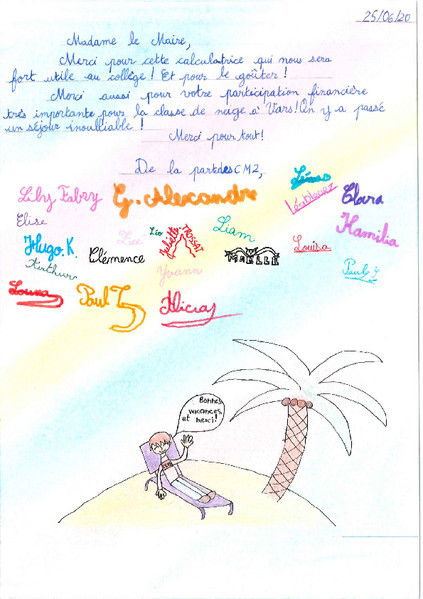 25/06/20
Madame le Maire,
Merci pour cette calculatrice qui nous sera
fort utile au collège ! Et pour le goûter !
Merci aussi pour votre participation financière
très importante pour la classe de neige à Vars ! On y a passé
un séjour inoubliable !
Merci pour tout !
De la part des CM2,
Lily Fabry G. Alexandre Clara
Elise Kamilia
Hugo.K. Clémence Zoé Léo Juliette Liam MAELLE Louisa
Arthur Yvann Paul
Louna Paul Alicia
Bonnes
vacances
et merci !